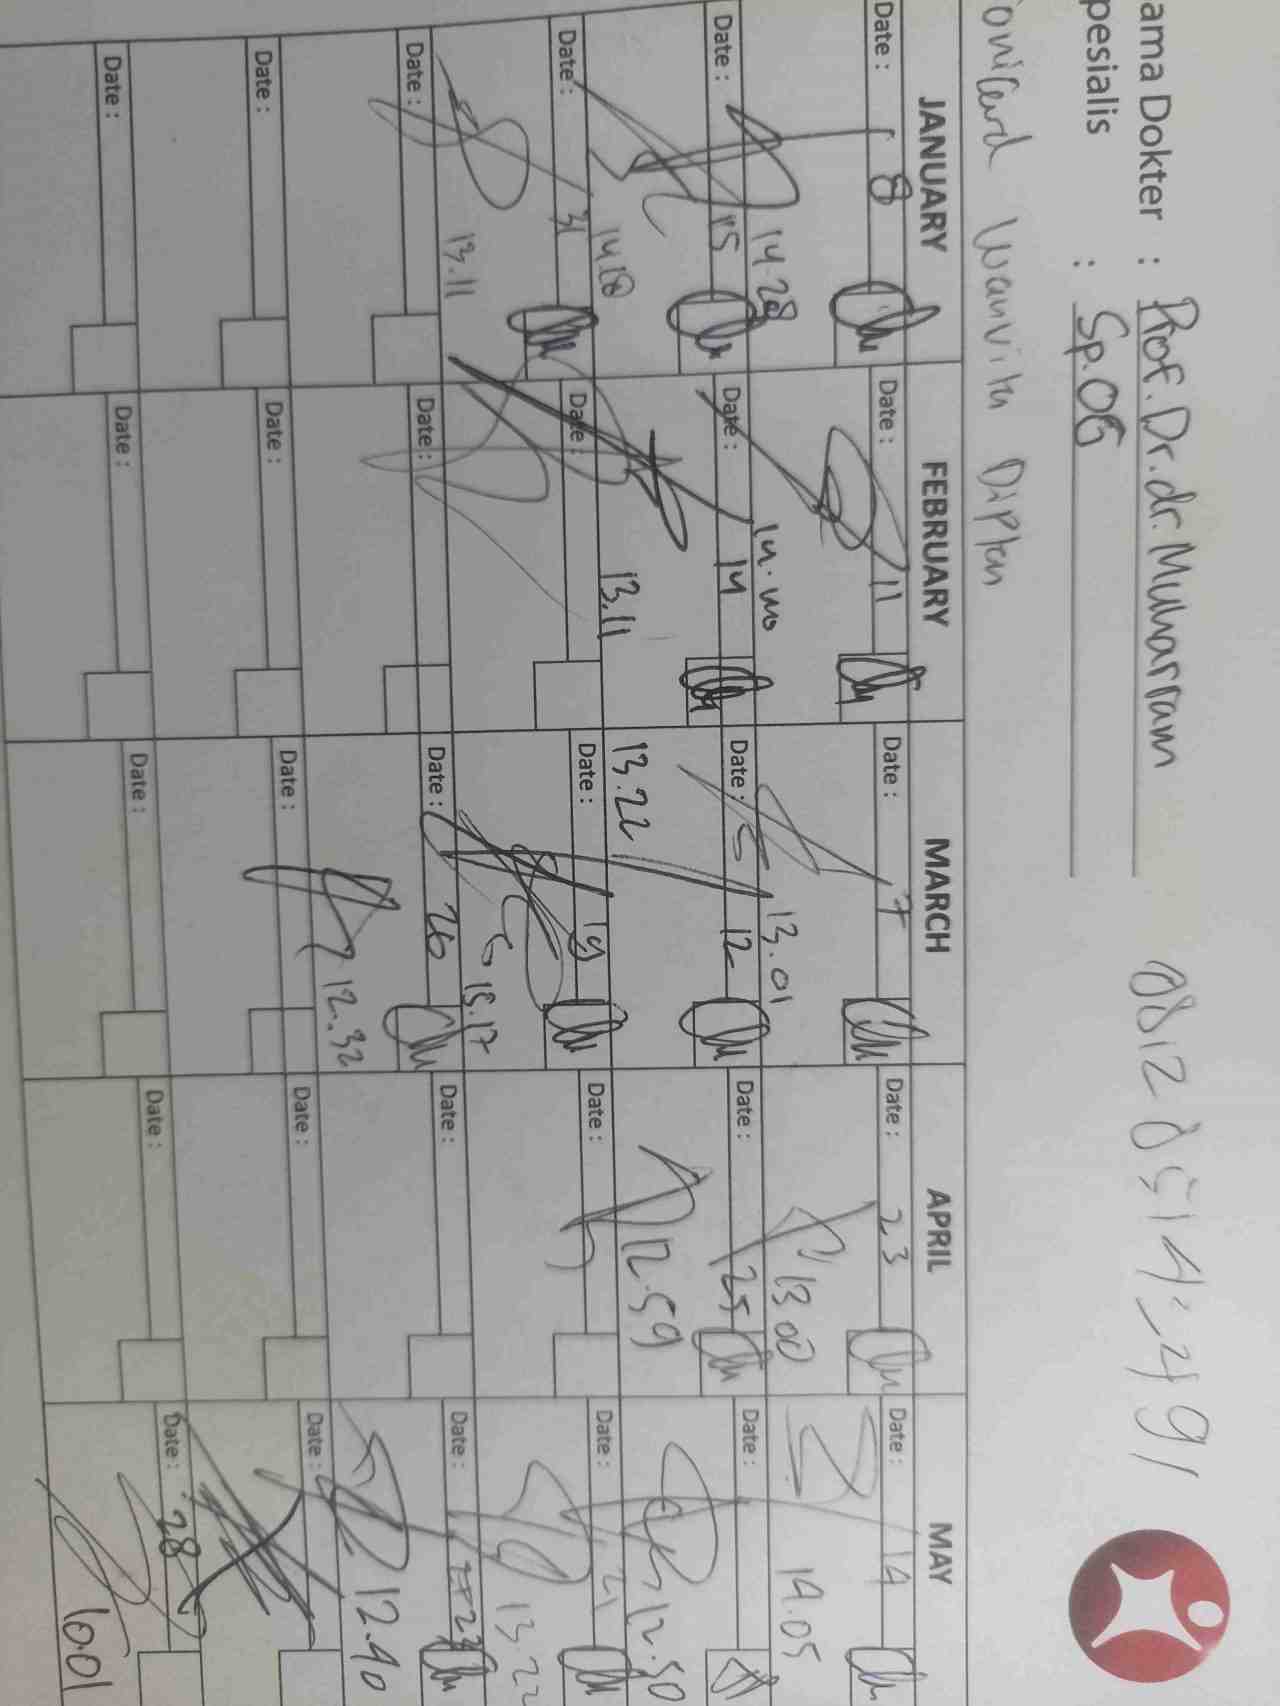 ama Dokter : Prof. Dr. dr. Muharram
pesialis : Sp.OG
JANUARY FEBRUARY MARCH APRIL MAY
Date : 8 Date : 11 Date : 7 Date : 23 Date : 14
14.28 13.01 13.00 14.05
Date : 15 Date : 14 Date : 12 Date : 25 Date :
14.18 13.11 13.22 12.59 12.50
Date : 31 Date : Date : 19 Date : Date : 21
13.11 13.22
Date : Date : Date : 26 Date : Date : 22
12.32 12.40
Date : Date : Date : Date : Date :
Date : Date : Date : Date : Date : 28
10.01